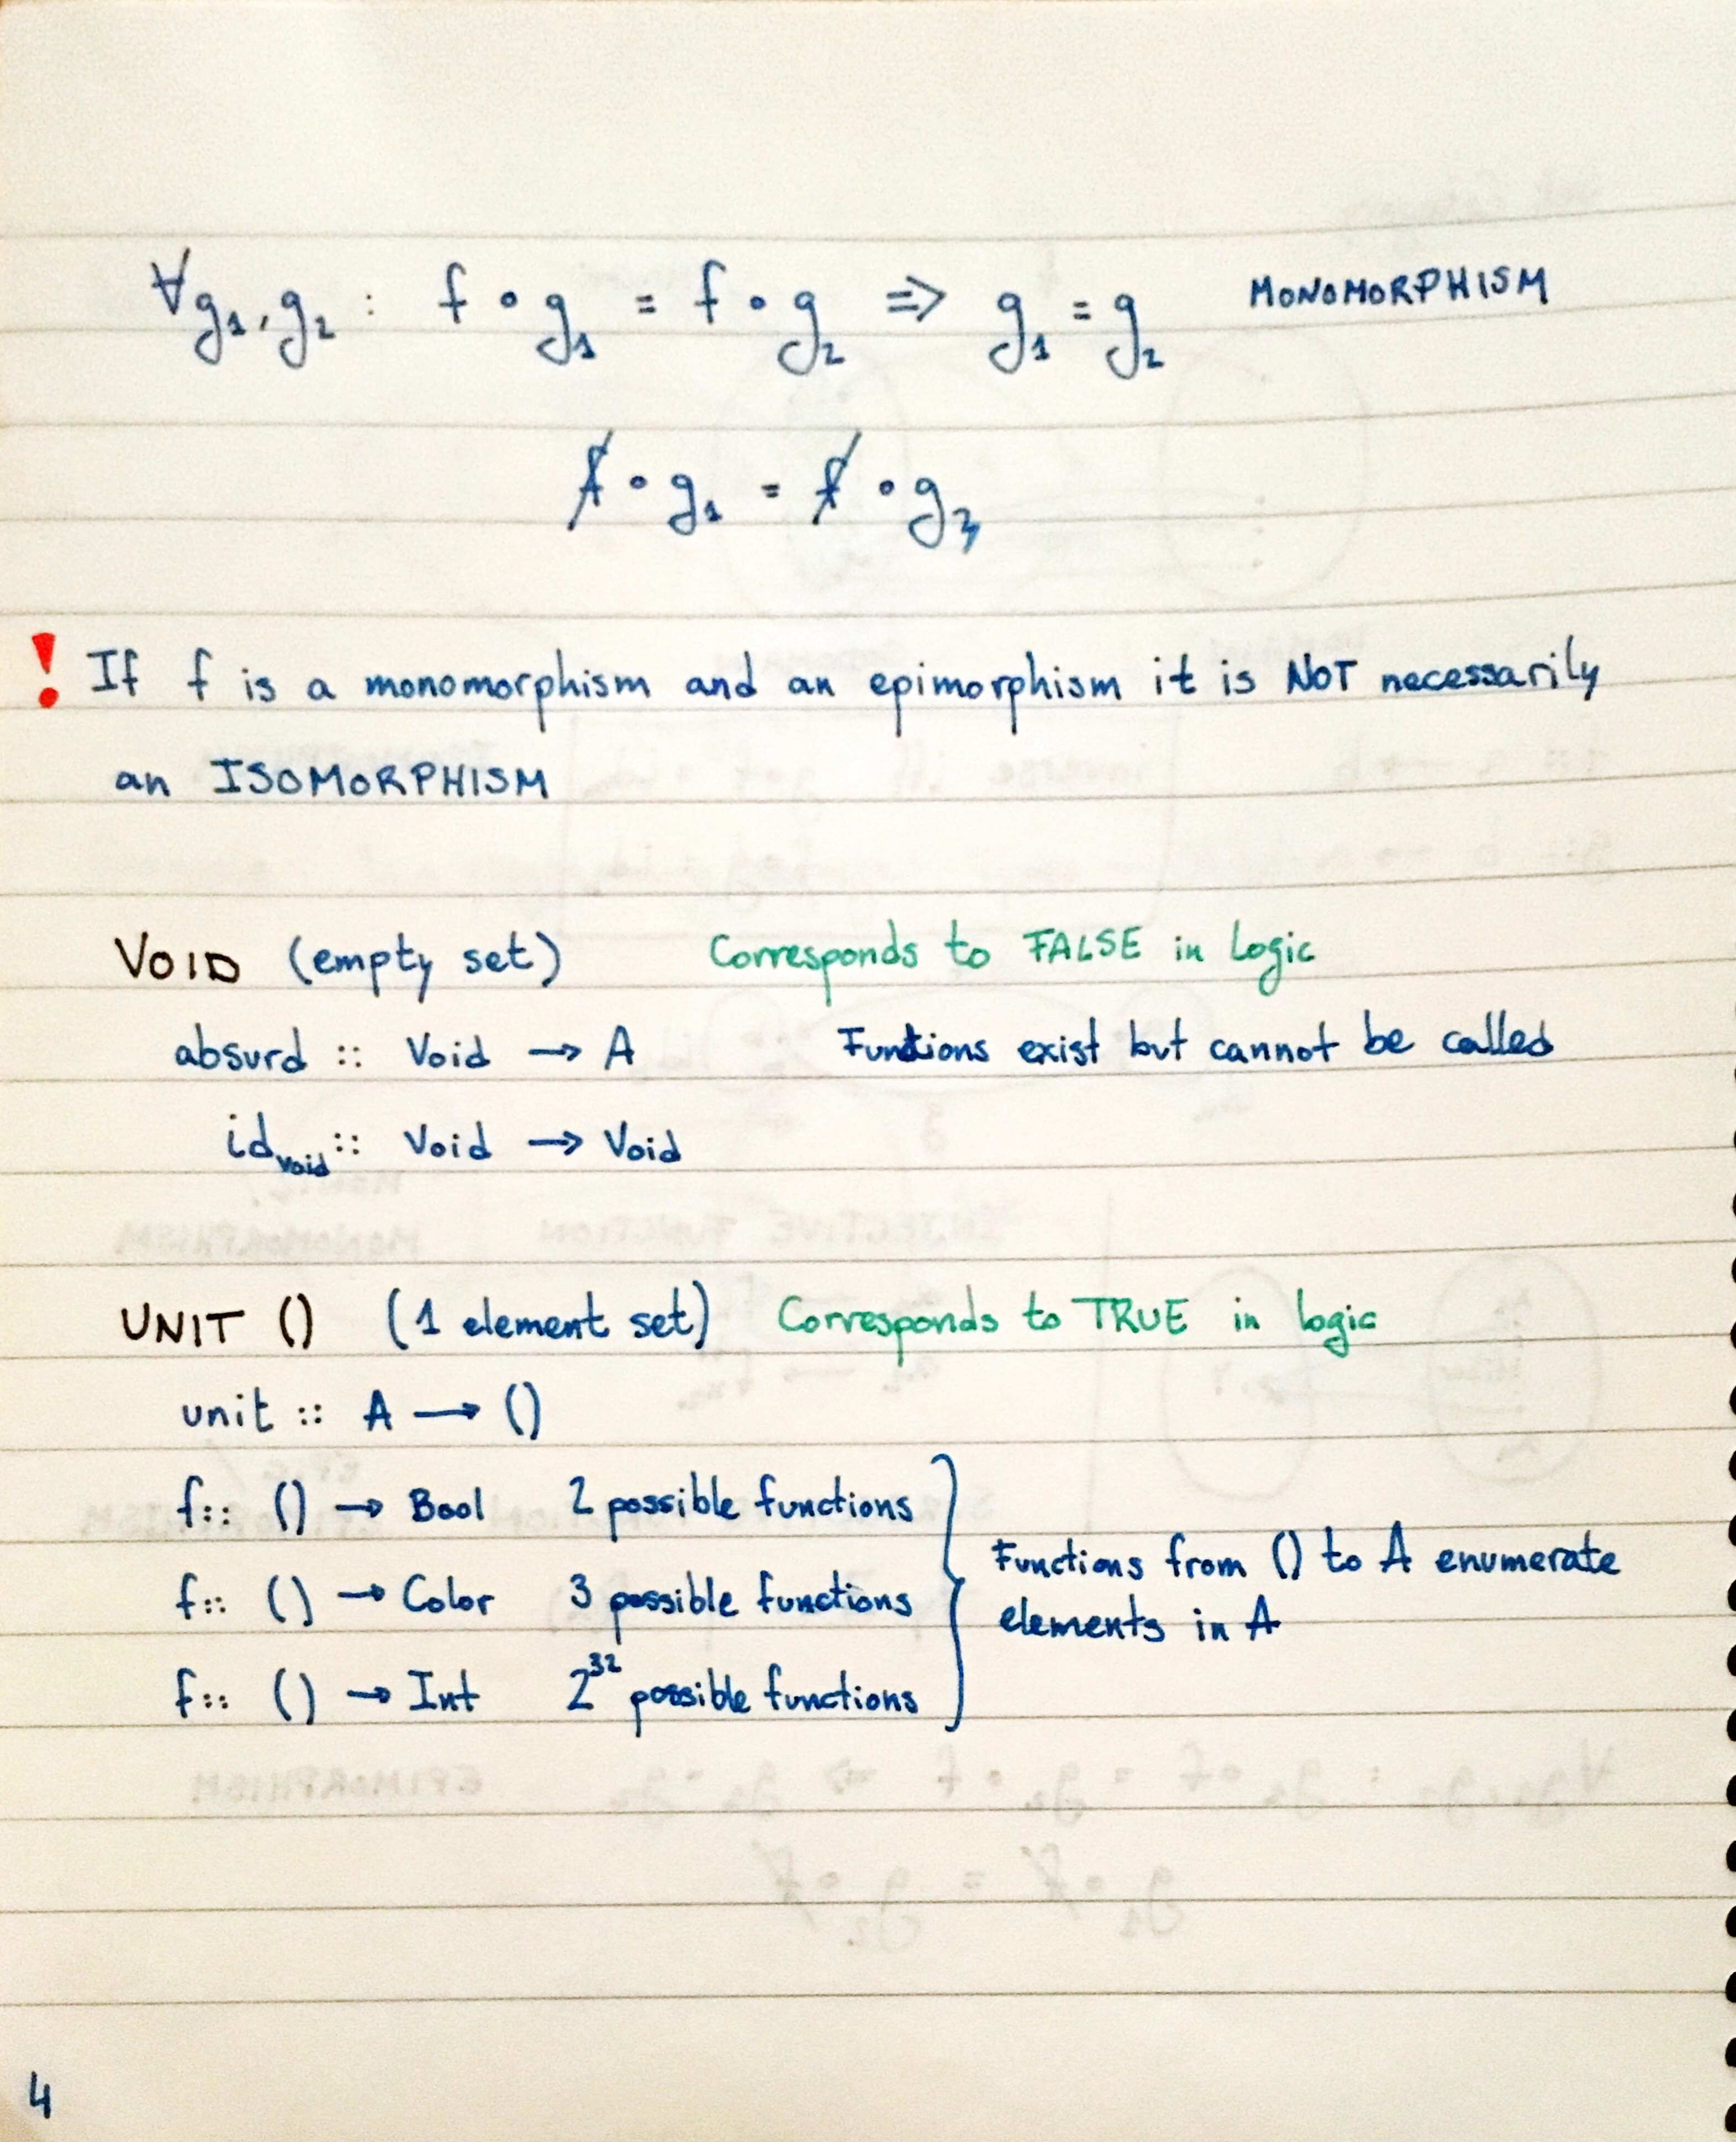 ∀g₁,g₂ : f ∘ g₁ = f ∘ g₂ ⇒ g₁ = g₂ MONOMORPHISM
f ∘ g₁ = f ∘ g₂
! If f is a monomorphism and an epimorphism it is NOT necessarily
an ISOMORPHISM
VOID (empty set) Corresponds to FALSE in Logic
absurd :: Void → A Functions exist but cannot be called
id_void :: Void → Void
UNIT () (1 element set) Corresponds to TRUE in logic
unit :: A → ()
f :: () → Bool 2 possible functions
f :: () → Color 3 possible functions
f :: () → Int 2³² possible functions
Functions from () to A enumerate
elements in A
4